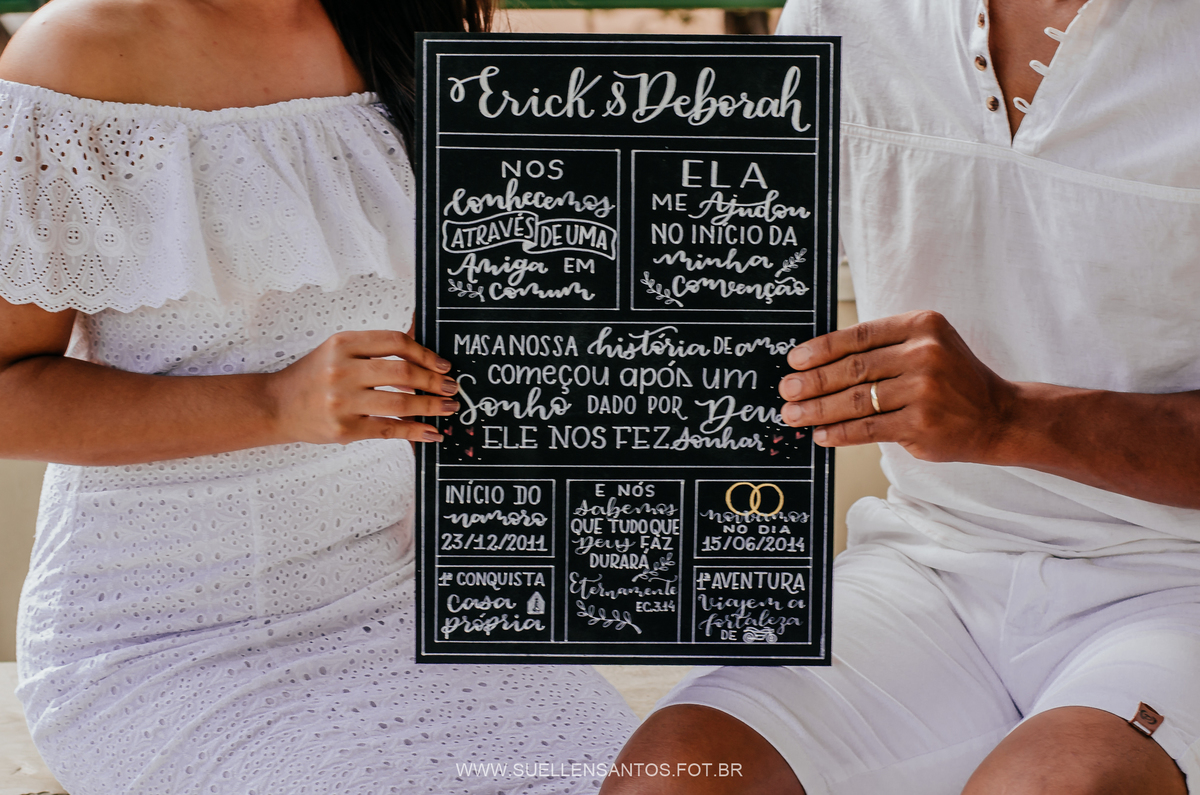 Erick & Deborah
NOS
Conhecemos
ATRAVÉS DE UMA
Amiga EM
comum
ELA
ME Ajudou
NO INÍCIO DA
minha
Convenção
MAS A NOSSA história DE amor
começou após um
Sonho DADO POR Deus
ELE NOS FEZ sonhar
INÍCIO DO
namoro
23/12/2011
1ª CONQUISTA
Casa
própria
E NÓS
sabemos
QUE TUDO QUE
Deus FAZ
DURARÁ
Eternamente
EC.3.14
Noivamos
NO DIA
15/06/2014
1ª AVENTURA
Viagem a
fortaleza
DE
WWW.SUELLENSANTOS.FOT.BR